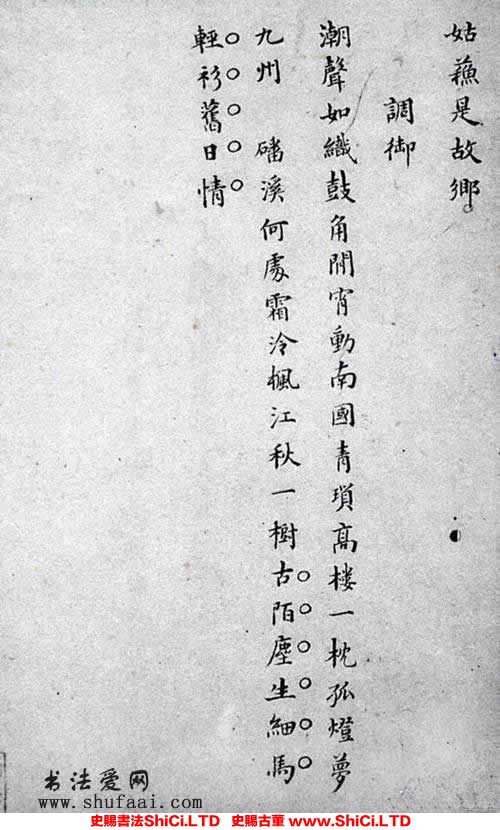 姑蘓是故鄉
調御
潮聲如織鼓角開宵動南國青瑣高楼一枕孤燈夢
九州　磻溪何處霜冷楓江秋一樹古陌塵生細馬
輕衫舊日情
书法爱网
www.shufaai.com
史賜書法ShiCi.LTD 史賜古董 www.ShiCi.LTD